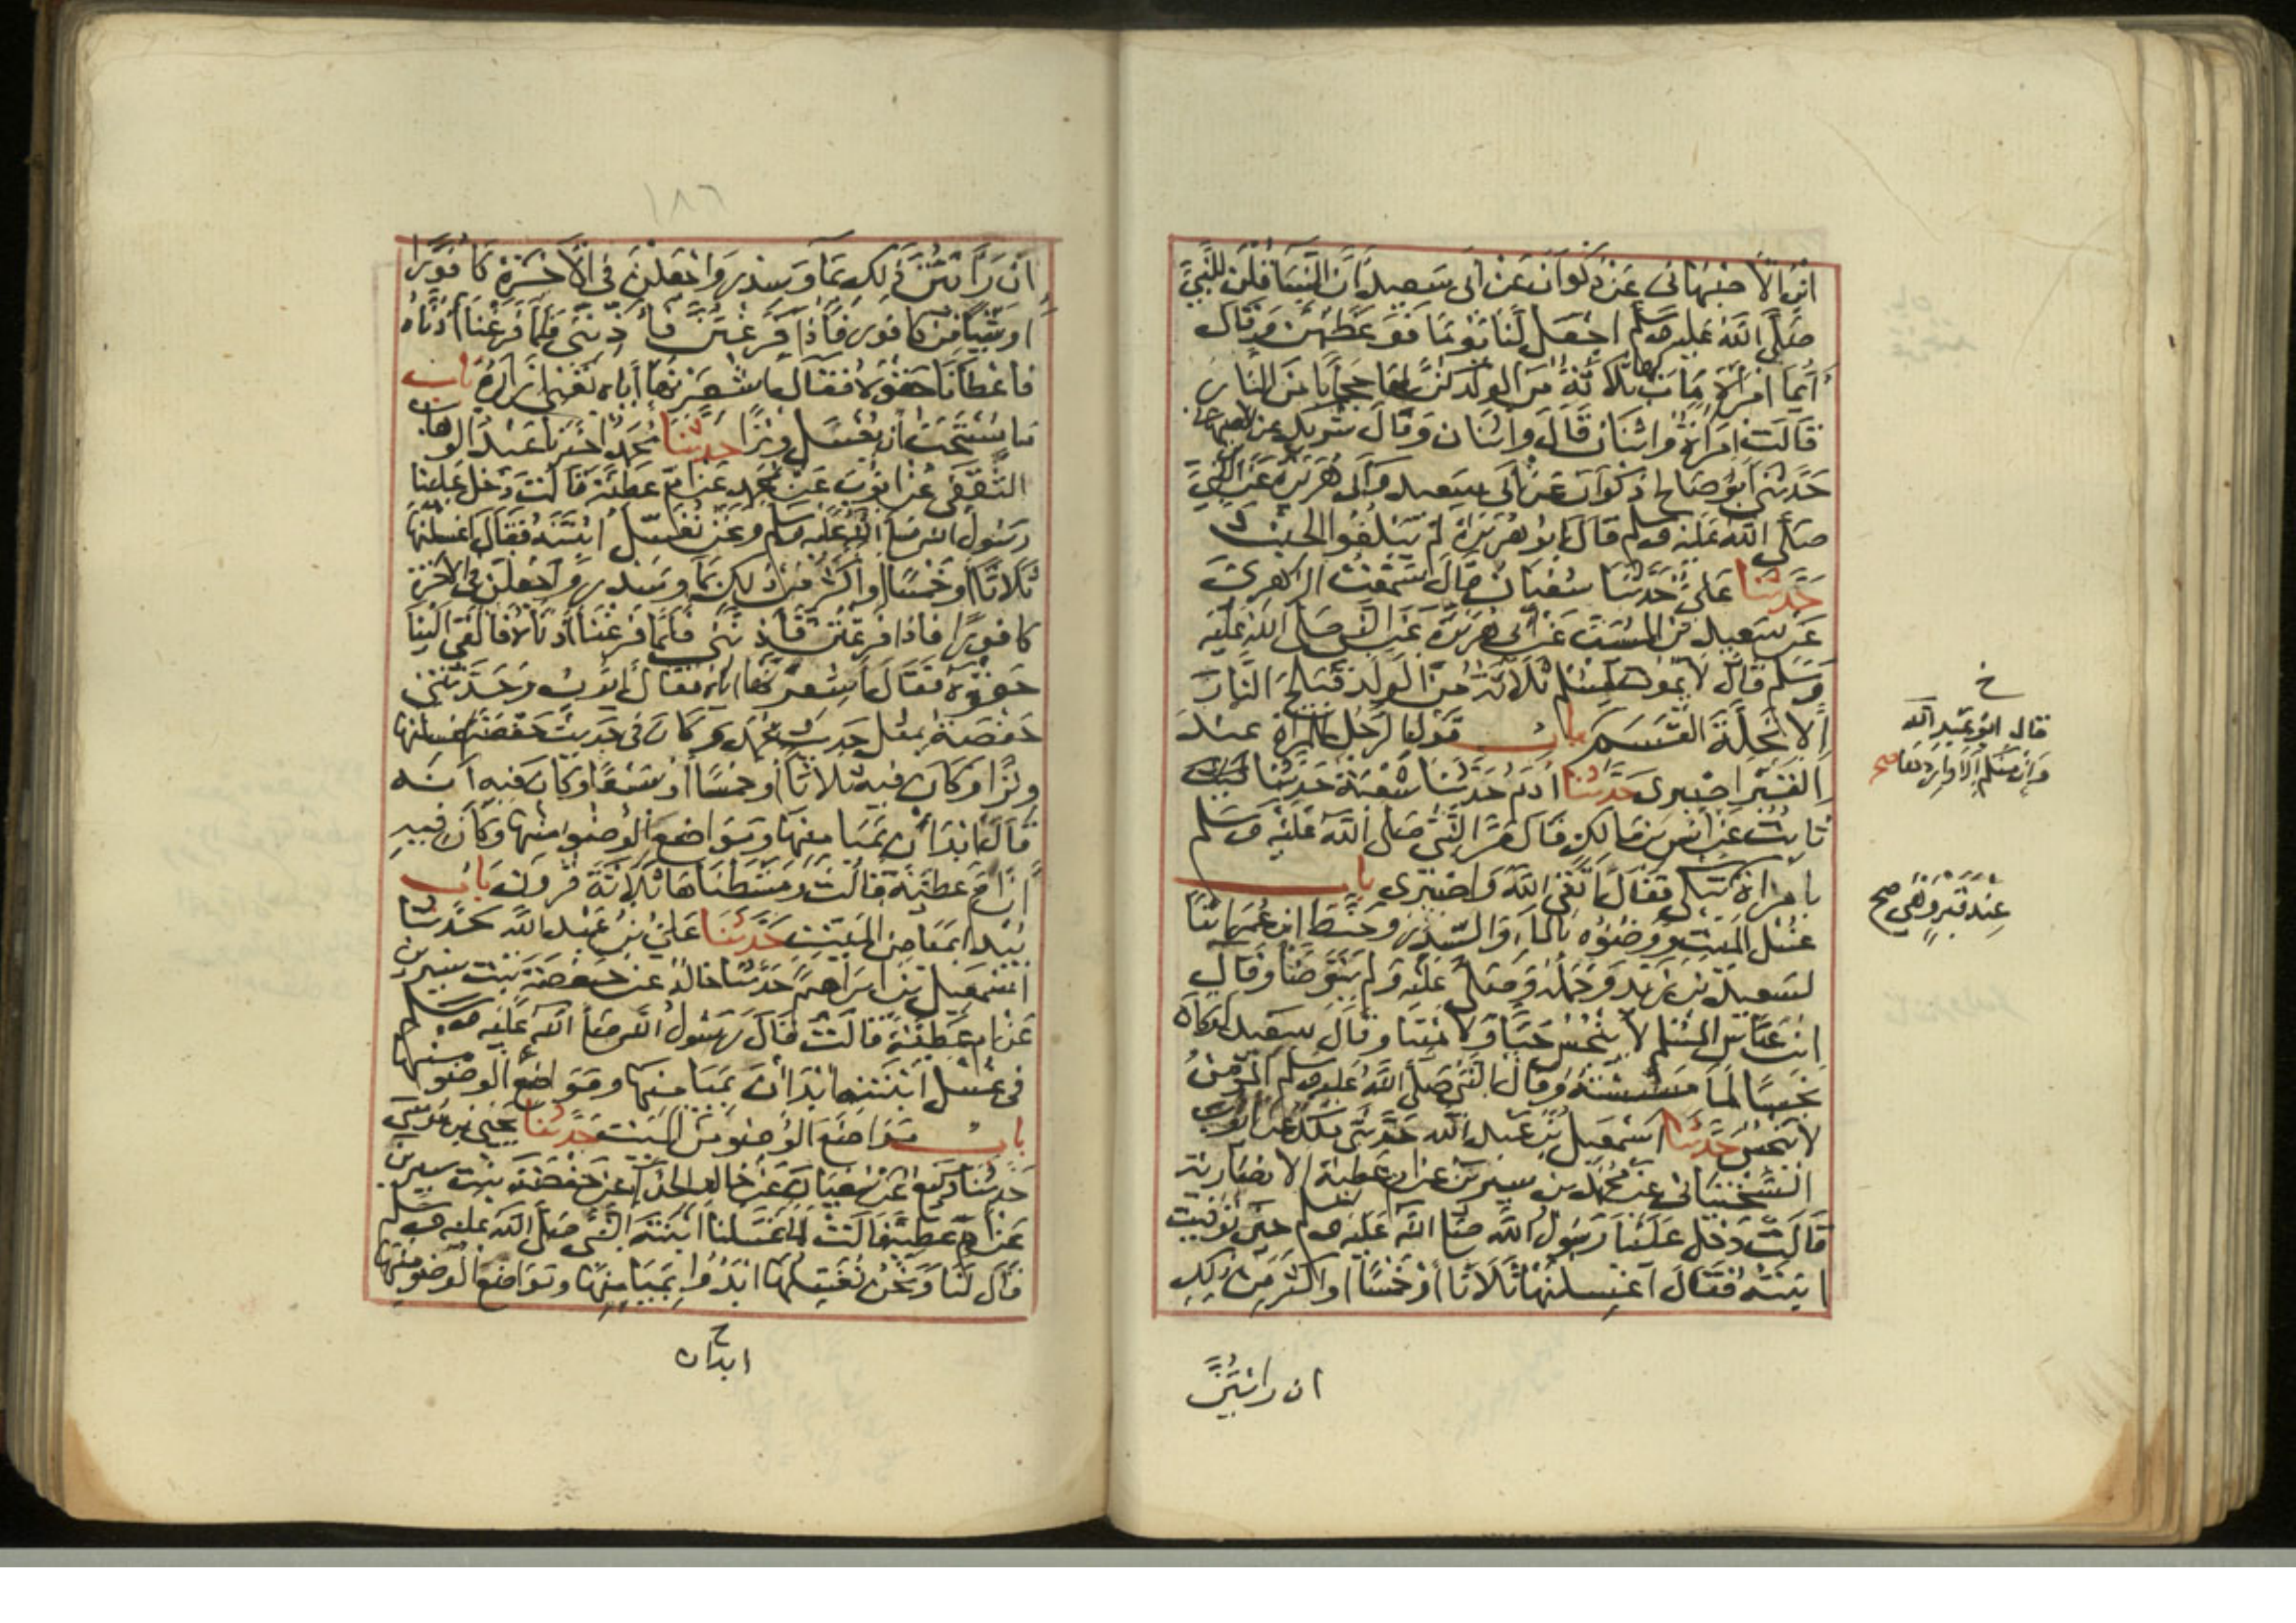 ابن الاصبهاني عن ذكوان عن ابي سعيد ان النساء قلن للنبي
صلى الله عليه وسلم اجعل لنا يوما فوعظهن وقال
ايما امرأة مات لها ثلاثة من الولد كن لها حجابا من النار
قالت امرأة واثنان قال واثنان وقال شريك عن ابن الاصبهاني
حدثني ابو صالح ذكوان عن ابي سعيد وابي هريرة عن النبي
صلى الله عليه وسلم قال ابو هريرة لم يبلغوا الحنث
حدثنا علي حدثنا سفيان قال سمعت الزهري
عن سعيد بن المسيب عن ابي هريرة عن النبي صلى الله عليه
وسلم قال لا يموت لمسلم ثلاثة من الولد فيلج النار
الا تحلة القسم باب قول الرجل للمرأة عند
القبر اصبري حدثنا ادم حدثنا شعبة حدثنا
ثابت عن انس بن مالك قال مر النبي صلى الله عليه وسلم
بامراة تبكي فقال اتقي الله واصبري باب
غسل الميت ووضوئه بالماء والسدر وحنط ابن عمر ابنا
لسعيد بن زيد وحمله وصلى عليه ولم يتوضا وقال
ابن عباس المسلم لا ينجس حيا ولا ميتا وقال سعيد لو كان
نجسا لما مسسته وقال النبي صلى الله عليه وسلم المؤمن
لا ينجس حدثنا اسمعيل بن عبد الله حدثني ملك عن ايوب
السختياني عن محمد بن سيرين عن ام عطية الانصارية
قالت دخل علينا رسول الله صلى الله عليه وسلم حين توفيت
ابنته فقال اغسلنها ثلاثا او خمسا او اكثر من ذلك
ان رايتن
خ
قال ابو عبد الله
وان منكم الا واردها صح
عند قبر وهي صح
١٨٦
ان رايتن ذلك بماء وسدر واجعلن في الآخرة كافورا
او شيئا من كافور فاذا فرغتن فاذنني فلما فرغنا اذناه
فاعطانا حقوه فقال اشعرنها اياه تعني ازاره باب
ما يستحب ان يغسل وترا حدثنا محمد اخبرنا عبد الوهاب
الثقفي عن ايوب عن محمد عن ام عطية قالت دخل علينا
رسول الله صلى الله عليه وسلم ونحن نغسل ابنته فقال اغسلنها
ثلاثا او خمسا او اكثر من ذلك بماء وسدر واجعلن في الآخرة
كافورا فاذا فرغتن فاذنني فلما فرغنا اذناه فالقى الينا
حقوه فقال اشعرنها اياه فقال ايوب وحدثتني
حفصة بمثل حديث محمد وكان في حديث حفصة اغسلنها
وترا وكان فيه ثلاثا او خمسا او سبعا وكان فيه انه
قال ابدان بميامنها ومواضع الوضوء منها وكان فيه
ان ام عطية قالت ومشطناها ثلاثة قرون باب
يبدا بميامن الميت حدثنا علي بن عبد الله حدثنا
اسمعيل بن ابراهيم حدثنا خالد عن حفصة بنت سيرين
عن ام عطية قالت قال رسول الله صلى الله عليه وسلم
في غسل ابنته ابدان بميامنها ومواضع الوضوء منها
باب مواضع الوضوء من الميت حدثنا يحيى بن موسى
حدثنا وكيع عن سفيان عن خالد الحذاء عن حفصة بنت سيرين
عن ام عطية قالت لما غسلنا ابنة النبي صلى الله عليه وسلم
قال لنا ونحن نغسلها ابدؤا بميامنها ومواضع الوضوء منها
ح
ابدان